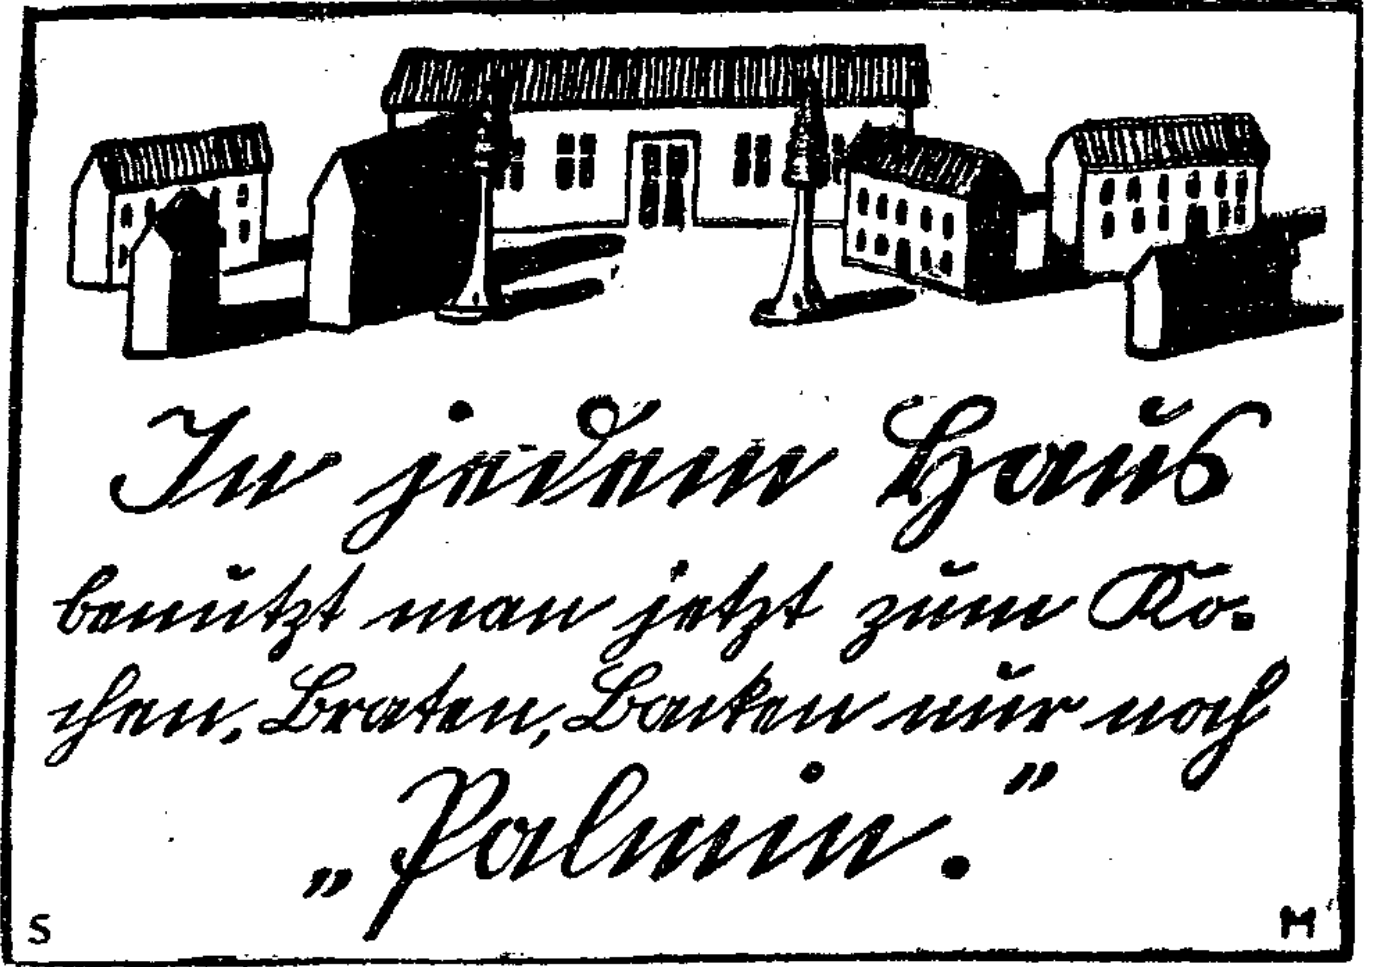 In jedem Haus
benützt man jetzt zum Ko-
chen, Braten, Backen nur noch
„Palmin.”
S M